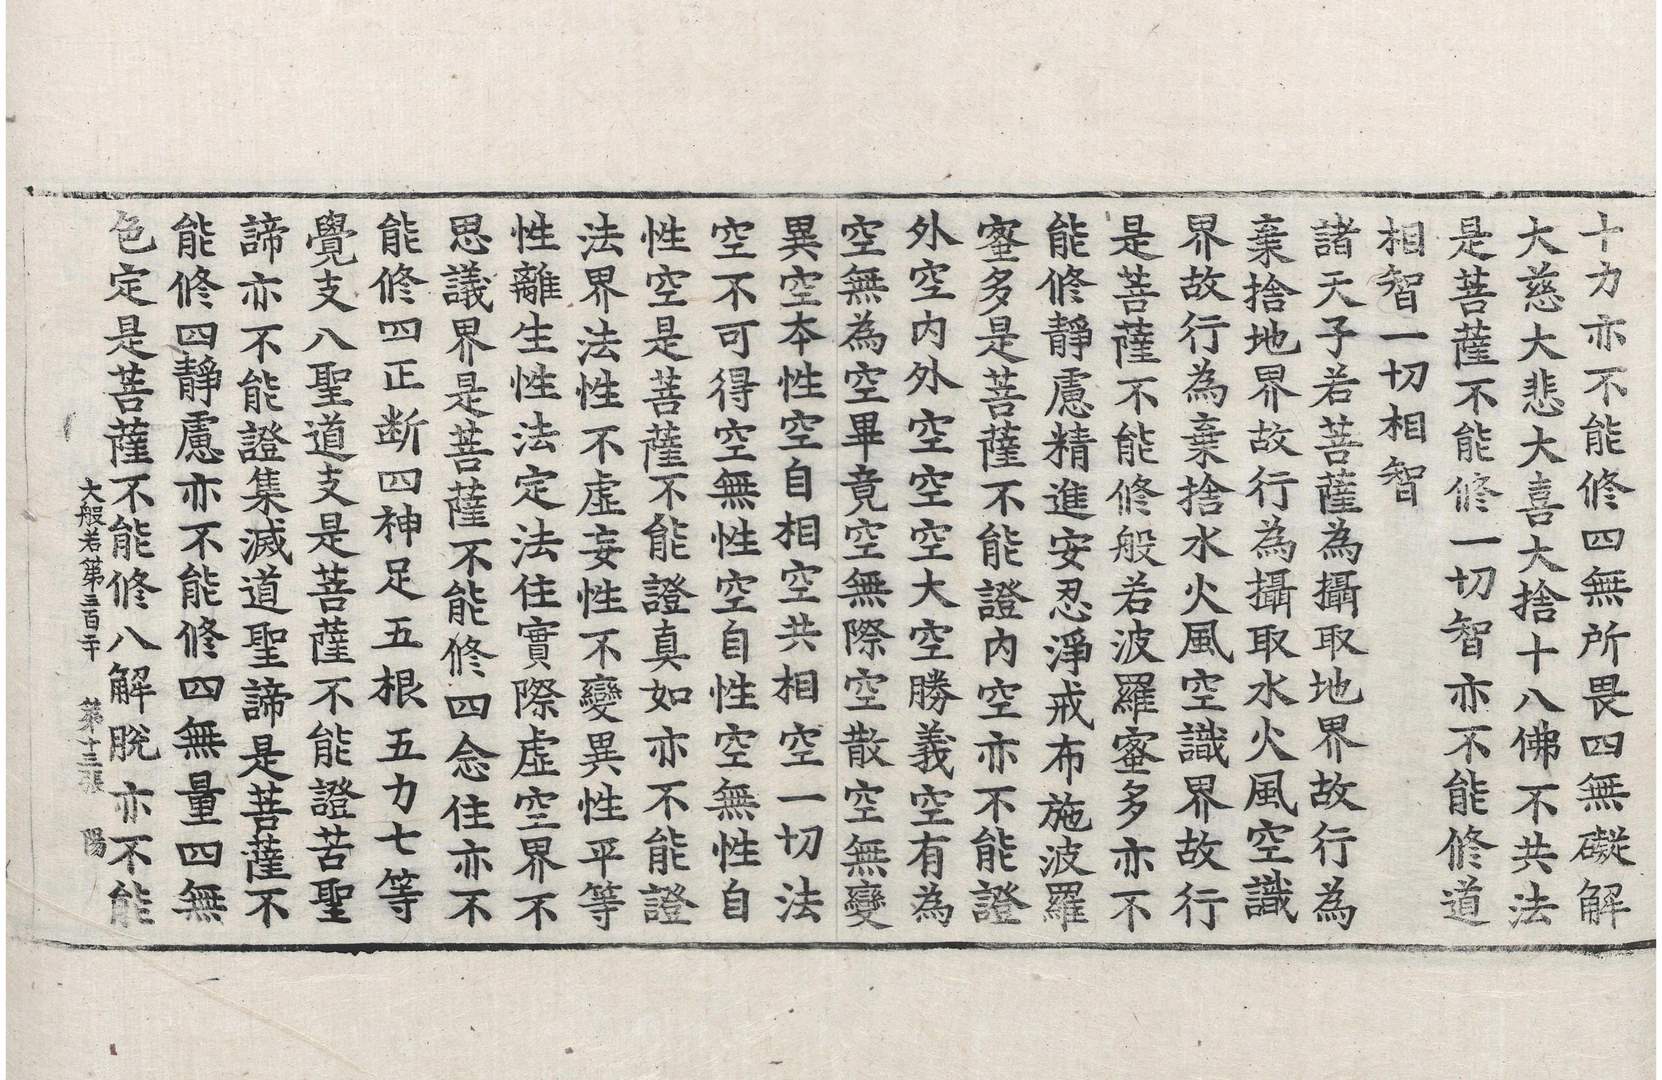 十力亦不能修四無所畏四無礙解
大慈大悲大喜大捨十八佛不共法
是菩薩不能修一切智亦不能修道
相智一切相智
諸天子若菩薩為攝取地界故行為
棄捨地界故行為攝取水火風空識
界故行為棄捨水火風空識界故行
是菩薩不能修般若波羅蜜多亦不
能修靜慮精進安忍淨戒布施波羅
蜜多是菩薩不能證內空亦不能證
外空內外空空空大空勝義空有為
空無為空畢竟空無際空散空無變
異空本性空自相空共相空一切法
空不可得空無性空自性空無性自
性空是菩薩不能證真如亦不能證
法界法性不虛妄性不變異性平等
性離生性法定法住實際虛空界不
思議界是菩薩不能修四念住亦不
能修四正断四神足五根五力七等
覺支八聖道支是菩薩不能證苦聖
諦亦不能證集滅道聖諦是菩薩不
能修四靜慮亦不能修四無量四無
色定是菩薩不能修八解脫亦不能
大般若第三百二十 第十三張 陽